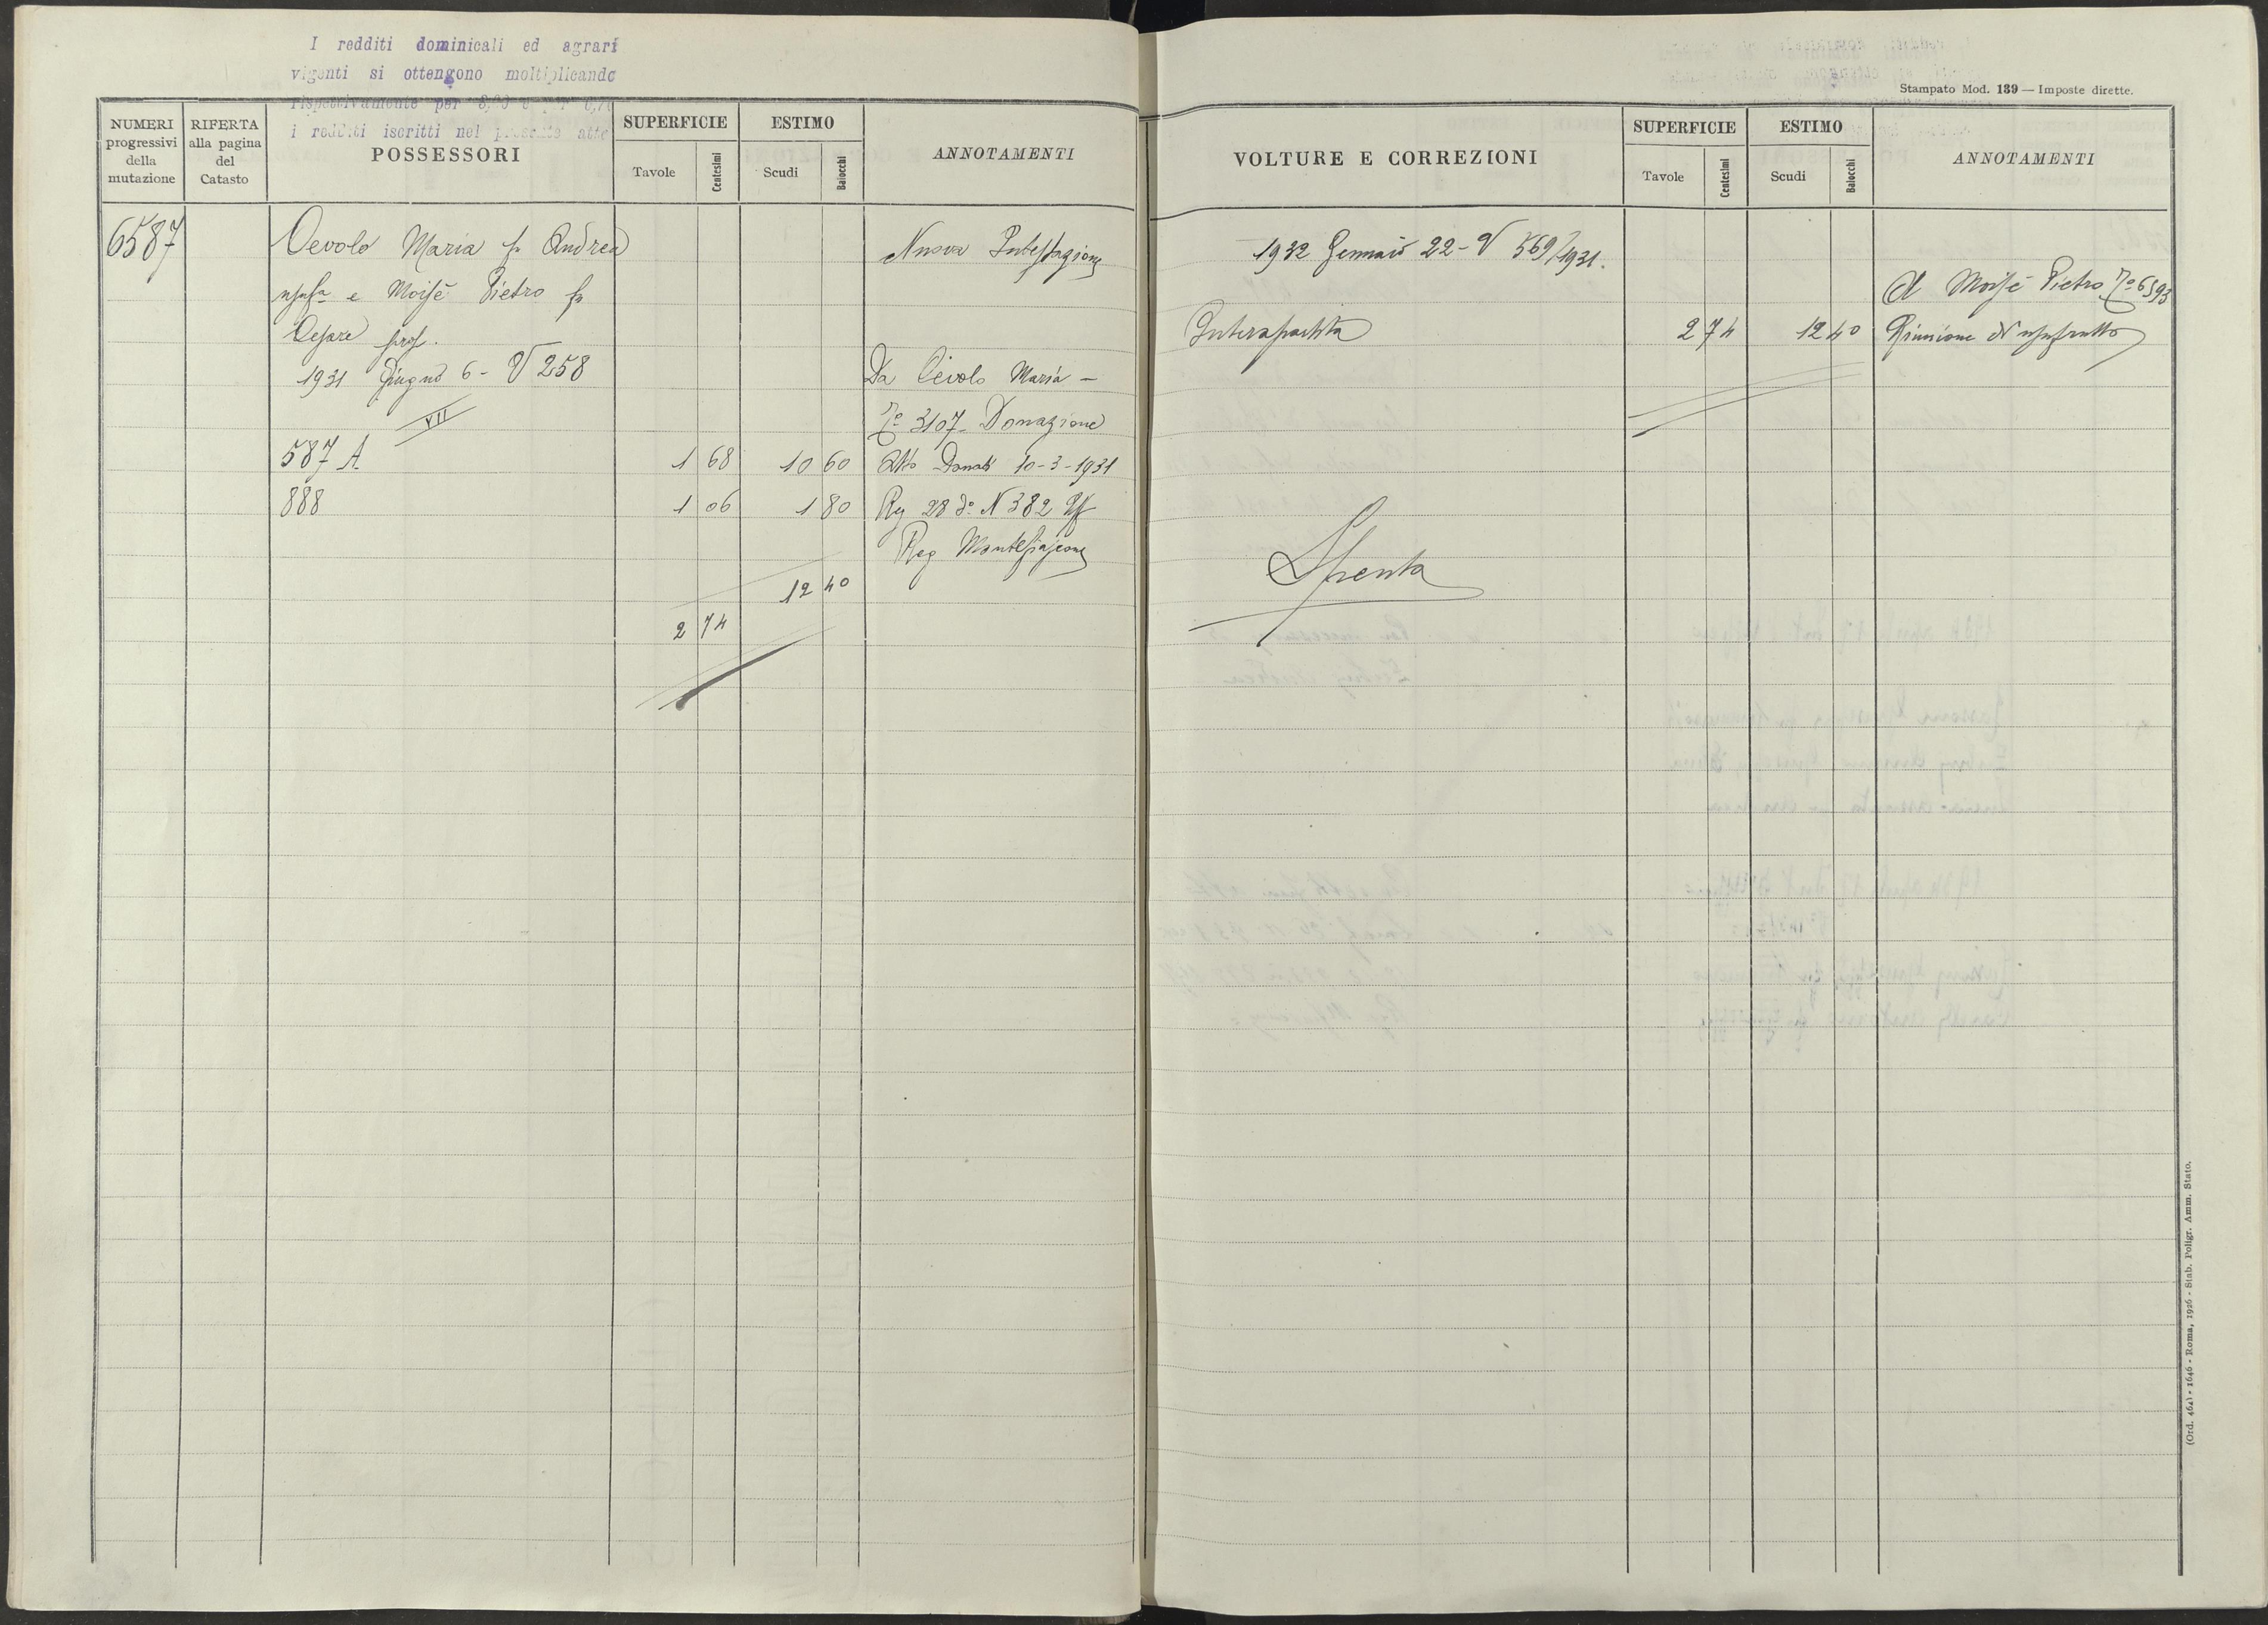 I redditi dominicali ed agrari
vigenti si ottengono moltiplicando
rispettivamente per
i redditi iscritti nel presente atto
NUMERI progressivi della mutazione
RIFERTA alla pagina del Catasto
POSSESSORI
SUPERFICIE
Tavole
Centesimi
ESTIMO
Scudi
Baiocchi
ANNOTAMENTI
6587
Cevolo Maria fu Andrea
Nuova Intestazione
usufa e Moisè Pietro fu
Cesare prop.
1931 Giugno 6 - V 258
Da Cevolo Maria -
VII
No 3107 - Donazione
587 A 1 68 10 60 Atto Donati 10-3-1931
888 1 06 1 80 Reg 28 do N 382 Uff
Reg Montefiascone
12 40
2 74
Stampato Mod. 139 — Imposte dirette.
VOLTURE E CORREZIONI
SUPERFICIE
Tavole
Centesimi
ESTIMO
Scudi
Baiocchi
ANNOTAMENTI
1932 Gennaio 22 - V 569/1931.
A Moisè Pietro No 6593
Intera partita 2 74 12 40 Riunione di usufrutto
Spenta
(Ord. 464) - 1646 - Roma, 1926 - Stab. Poligr. Amm. Stato.